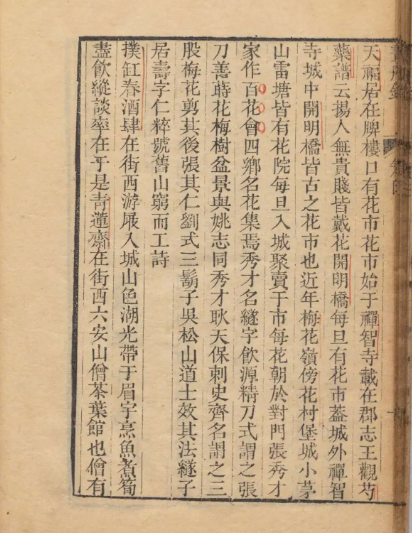 天福居在牌樓口有花市花市始于禪智寺載在郡志王觀芍
藥譜云揚人無貴賤皆戴花開明橋每旦有花市蓋城外禪智
寺城中開明橋皆古之花市也近年梅花嶺傍花村堡城小茅
山雷塘皆有花院每旦入城聚賣于市每花朝於對門張秀才
家作百花會四鄉名花集焉秀才名縫字飲源精刀式謂之張
刀善蒔花梅樹盆景與姚志同秀才耿天保刺史齊名謂之三
股梅花剪其後張其仁劉式三鬍子吳松山道士效其法縫子
居壽字仁粹號舊山窮而工詩
撲缸春酒肆在街西游屐入城山色湖光帶于眉宇烹魚煮筍
盡飲縱談率在于是青蓮齋在街西六安山僧茶葉館也僧有